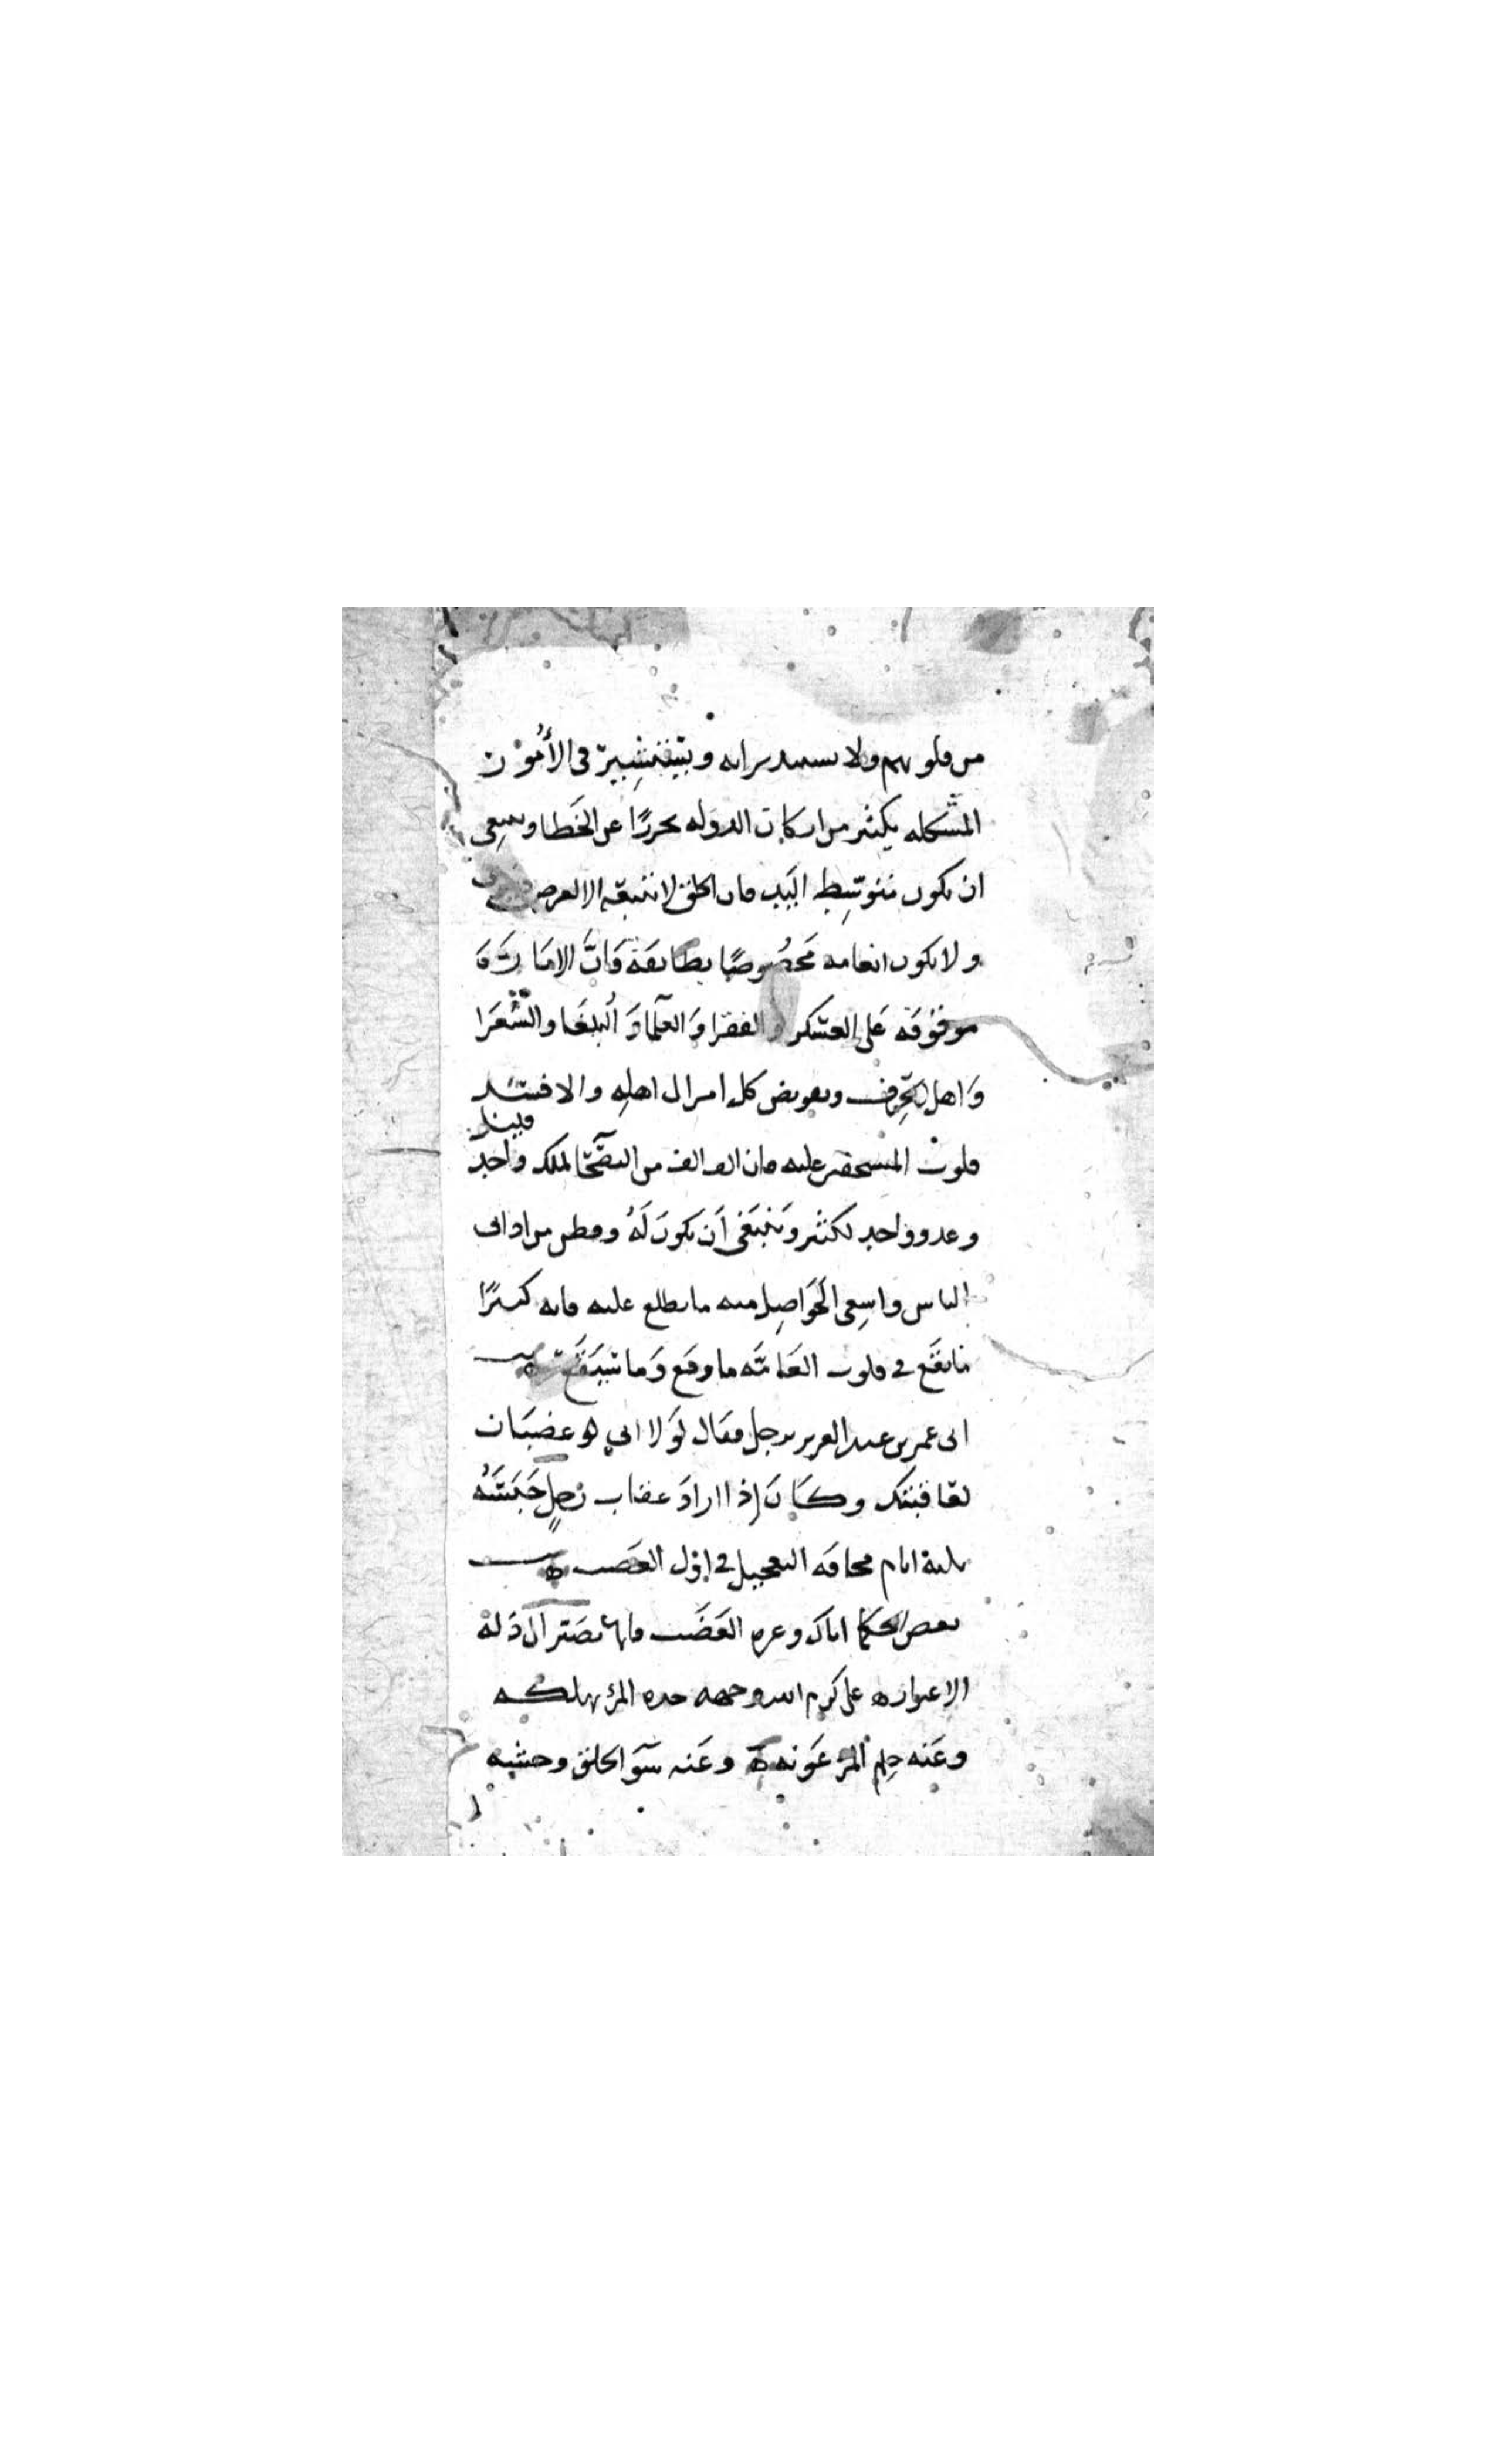 من قلوبهم ولا يستبد برايه ويستشير فى الأمُور
المشكله بكثير من اركان الدوله تحرزًا عن الخَطا وينبغى
ان يكون متوسِط اليد فان الخلق لا تتبعه الا لعرض
ولا يكون انعامه مَخصُوصًا بطايفَة فَانَّ الامَارَة
موقوفَه عَلى العسكر والفقرا وَالعلَما وَالبلغَا والشُّعَرَا
وَاهل الحِرف وتفويض كل امر الى اهلِه والا فسد
قلوب المستحقين عليه فان الف الف من النصَحَا لملك واحد قليل
وعدو واحد لكثير وَينبَغى أَن يكونَ لَهُ من ادانى
الناس واسِعى الحَوَاصِل منه ما يطلع عليه فانه كثيرًا
مَا يَقَع في قلوب العَامّه ما وقع وَما سَيَقَع
الى عمر بن عبد العزيز برجل فقال لَولا انى غضبَان
لعَاقبتك وكَانَ إذا ارادَ عقاب رَجلٍ حَبَسَهُ
ثلثة ايام مخافه التعجيل في اوّل الغضب
بعض الحكما اياك وعزه الغَضَب فانها تصَير الى ذَلة
الاعتذار ه على كرم الله وجهه حده المرء يهلكه
وعَنه حِلم المرء عَونه ه وعَنه سوَ الخلق وحشه